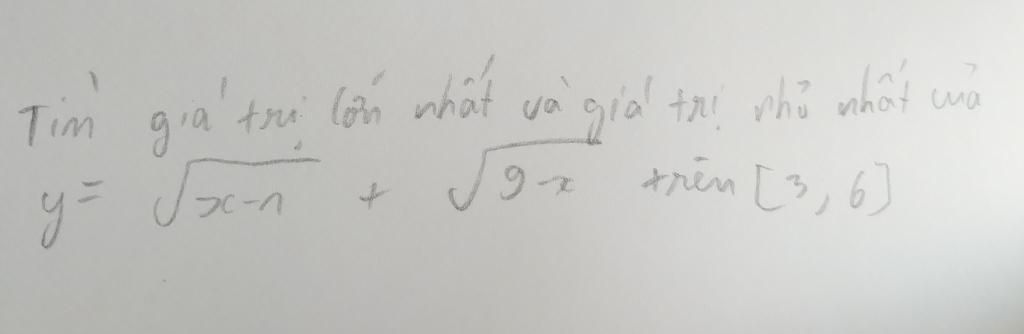 Tìm giá trị lớn nhất và giá trị nhỏ nhất của
y = √x-1 + √9-x trên [3, 6]